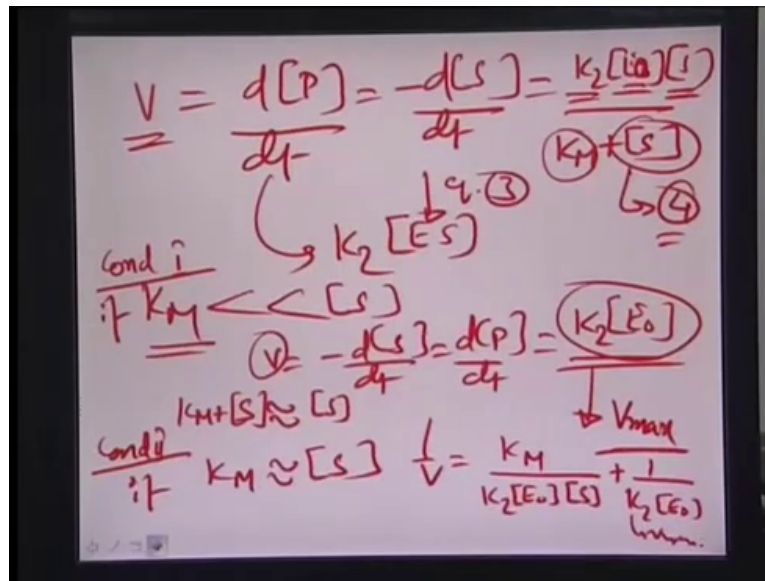 V = d[P]/dt = -d[S]/dt = K2[E0][S]/KM+[S]
↓ q. ③ ↳ ④
K2[ES]
Cond i
if KM << [S]
V = -d[S]/dt = d[P]/dt = K2[E0]
KM+[S] ≈ [S] ↓ Vmax
Cond ii
if KM ≈ [S] 1/V = KM/K2[E0][S] + 1/K2[E0]